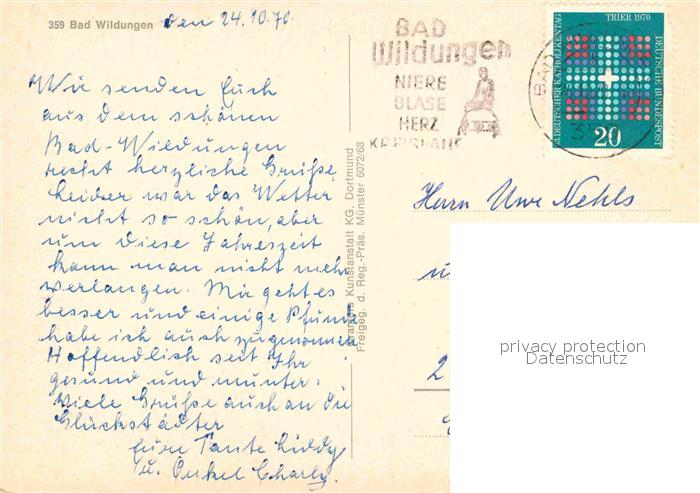 359 Bad Wildungen den 24.10.70
Wir senden Euch
aus dem schönen
Bad-Wildungen
recht herzliche Grüße,
leider war das Wetter
nicht so schön, aber
um diese Jahreszeit
kann man nicht mehr
verlangen. Mir geht es
besser und einige Pfund
habe ich auch zugenommen
Hoffendlich seit Ihr
gesund und munter.
Viele Grüße auch an die
Glückstädter
Eure Tante Liddy
u. Onkel Charly.
Cramers Kunstanstalt KG. Dortmund
Freigeg. d. Reg.-Präs. Münster 6072/68
BAD
Wildungen
NIERE
BLASE
HERZ
KREISLAUF
TRIER 1970
DEUTSCHER KATHOLIKENTAG
DEUTSCHE BUNDESPOST
20
BAD
35
Herrn Uwe Nehls
privacy protection
Datenschutz